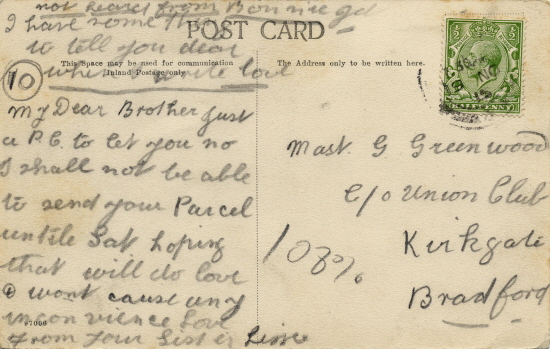 not heard from
I have some
to tell you dear
when write love
POST CARD
This Space may be used for communication
Inland Postage only.
The Address only to be written here.
HALFPENNY
10
My Dear Brother Just
a P.C. to let you no
I shall not be able
to send your Parcel
untile Sat hoping
that will do love
& wont cause any
inconvience Love
from your Sister
Mast. G Greenwood
c/o Union Club
Kirkgate
Bradford